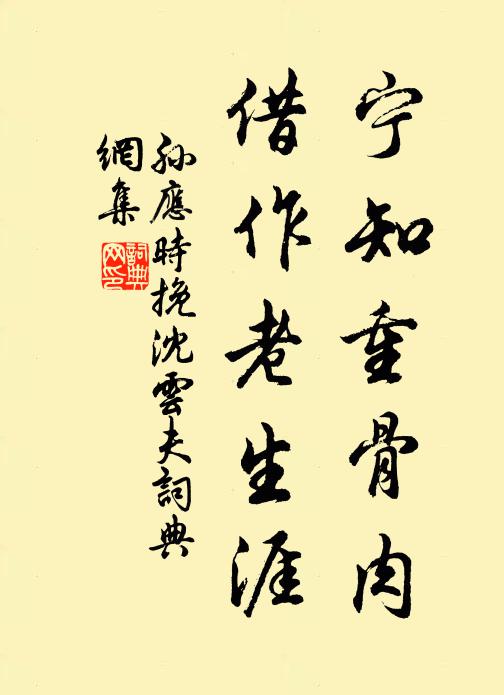 宁知重骨肉
借作老生涯
孙應時挽沈雲夫詞典
網集
詞典
网印